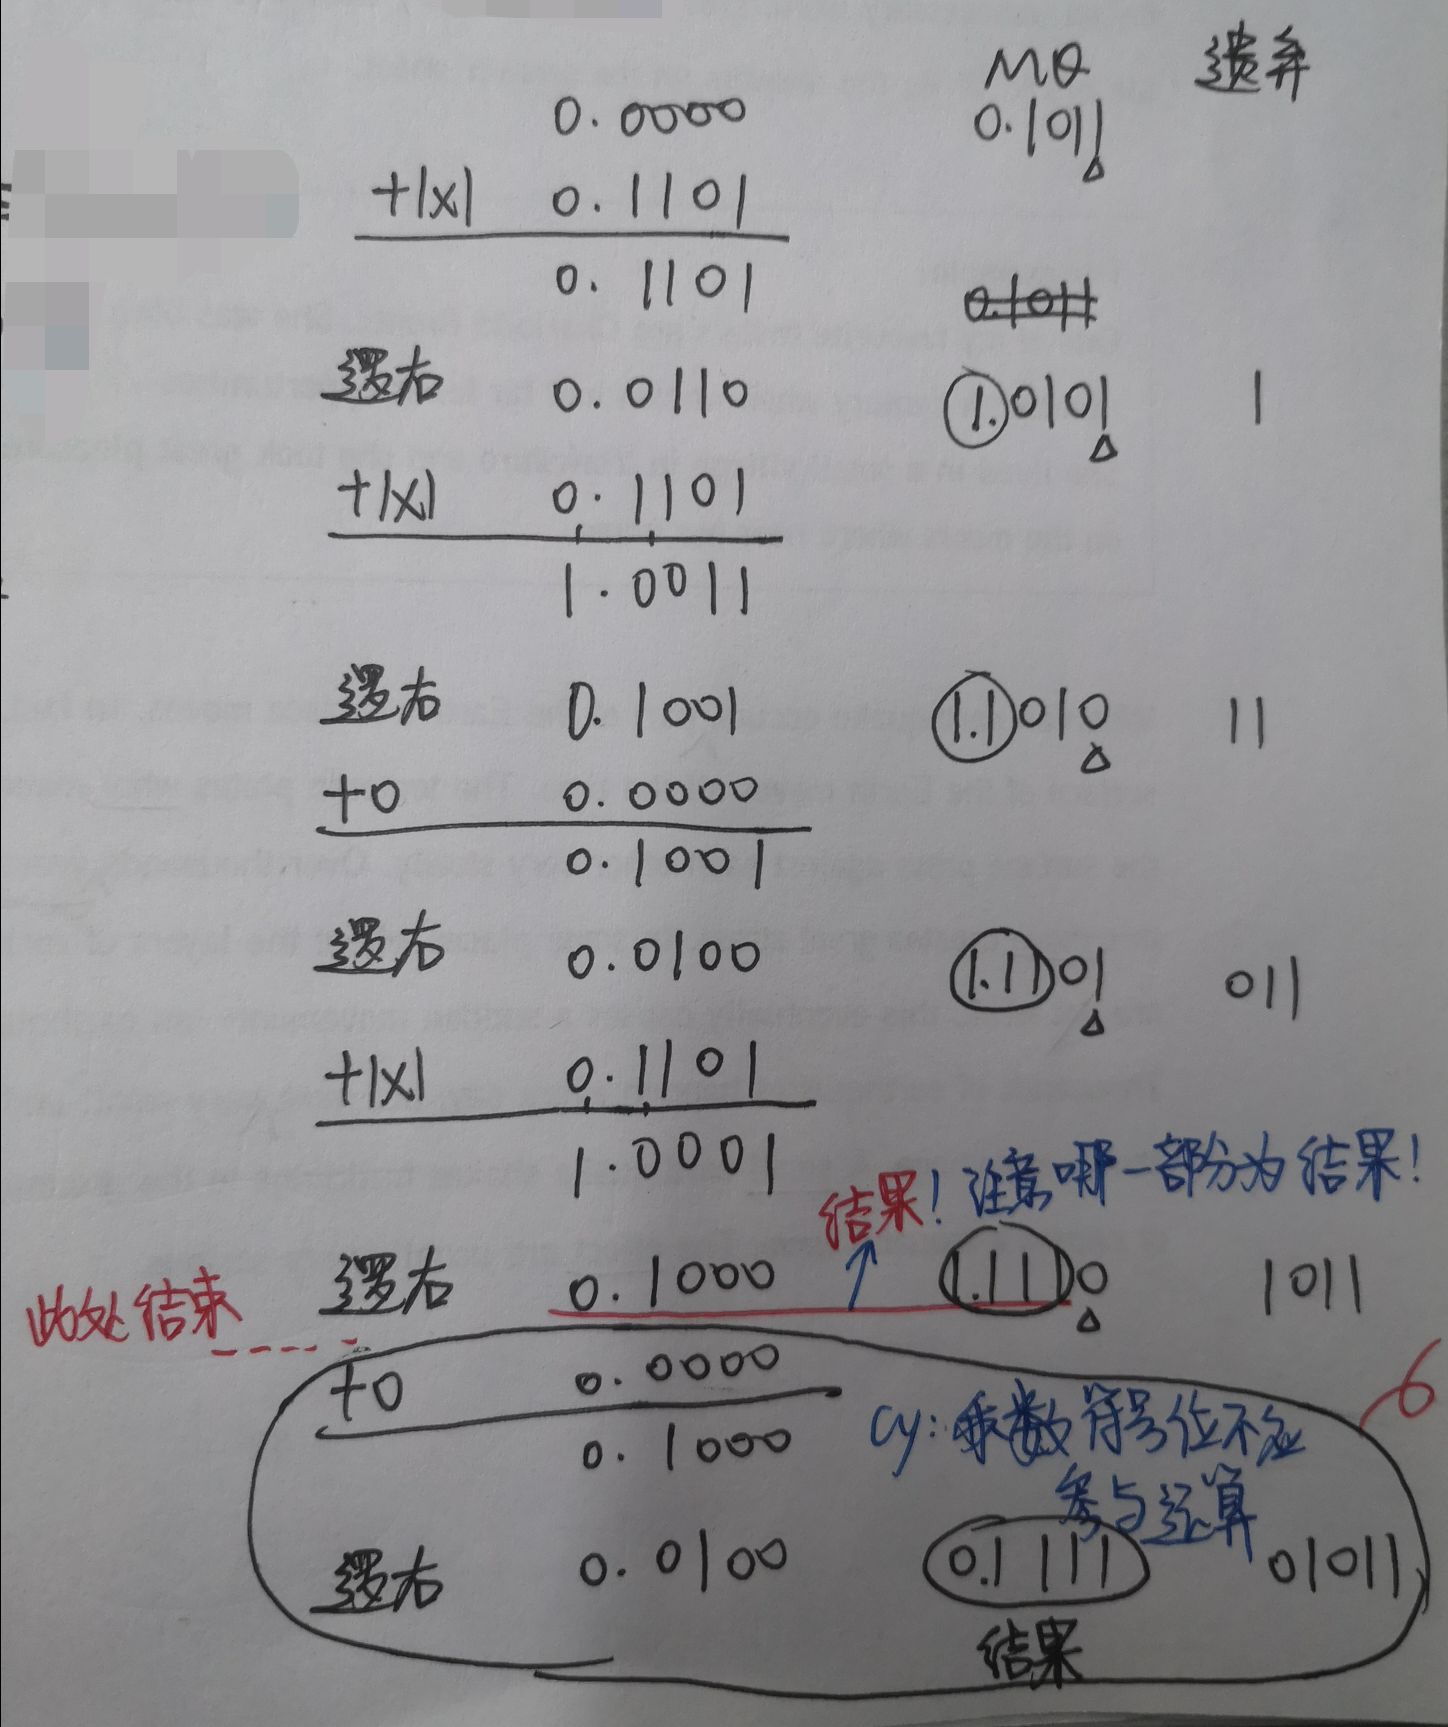 MQ 遗弃
0.0000 0.1011
+|x| 0.1101
0.1101
逻右 0.0110 1.0101 1
+|x| 0.1101
1.0011
逻右 0.1001 1.1010 11
+0 0.0000
0.1001
逻右 0.0100 1.1101 011
+|x| 0.1101
1.0001
结果! 注意哪一部分为结果!
逻右 0.1000 1.1110 1011
此处结束
+0 0.0000
0.1000
cy:乘数符号位不必
参与运算
逻右 0.0100 0.1111 01011
结果